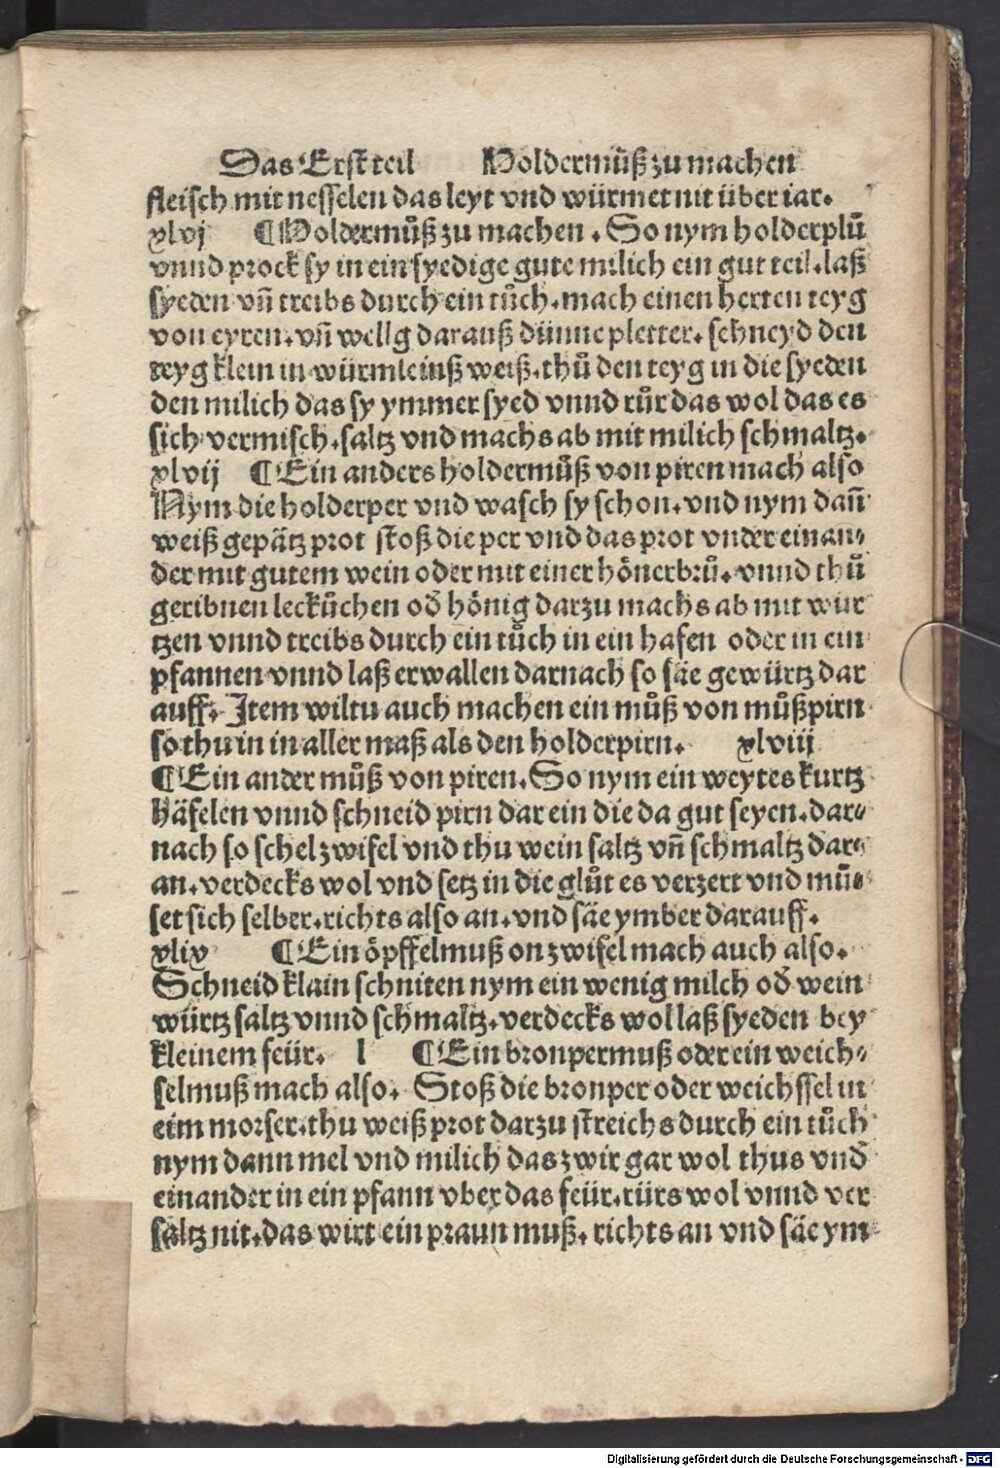 Das Erst teil Holdermůß zu machen
fleisch mit nesselen das leyt vnd würmet nit über iar.
xlvj ¶ Holdermůß zu machen . So nym holderplů
vnnd prock sy in ein syedige gute milich ein gut teil. laß
syeden vn̄ treibs durch ein tůch. mach einen herten teyg
von eyren. vn̄ wellg darauß dünne pletter. schneyd den
teyg klein in würmleinß weiß. thů den teyg in die syeden
den milich das sy ymmer syed vnnd růr das wol das es
sich vermisch. saltz vnd machs ab mit milich schmaltz.
xlvij ¶ Ein anders holdermůß von piren mach also
Nym die holderper vnd wasch sy schon. vnd nym dan̄
weiß gepätz prot stoß die per vnd das prot vnder einan⸗
der mit gutem wein oder mit einer hönerbrů. vnnd thů
geribnen leckůchen od̄ hönig darzu machs ab mit wur
tzen vnnd treibs durch ein tůch in ein hafen oder in ein
pfannen vnnd laß erwallen darnach so säe gewürtz dar
auff. Item wiltu auch machen ein můß von můßpirn
so thu in in aller maß als den holderpirn. xlviij
¶ Ein ander můß von piren. So nym ein weytes kurtz
häfelen vnnd schneid pirn dar ein die da gut seyen. dar⸗
nach so schel zwifel vnd thu wein saltz vn̄ schmaltz dar⸗
an. verdecks wol vnd setz in die glůt es verzert vnd mů⸗
set sich selber. richts also an. vnd säe ymber darauff.
xlix ¶ Ein öpffelmuß on zwifel mach auch also.
Schneid klain schniten nym ein wenig milch od̄ wein
würtz saltz vnnd schmaltz. verdecks wol laß syeden bey
kleinem feür. l ¶ Ein bronpermuß oder ein weich⸗
selmuß mach also. Stoß die bronper oder weichssel in
eim morser. thu weiß prot darzu streichs durch ein tůch
nym dann mel vnd milich das zwir gar wol thus vnd̄
einander in ein pfann vber das feür. rürs wol vnnd ver
saltz nit. das wirt ein praun muß. richts an vnd säe ym⸗
Digitalisierung gefördert durch die Deutsche Forschungsgemeinschaft - DFG